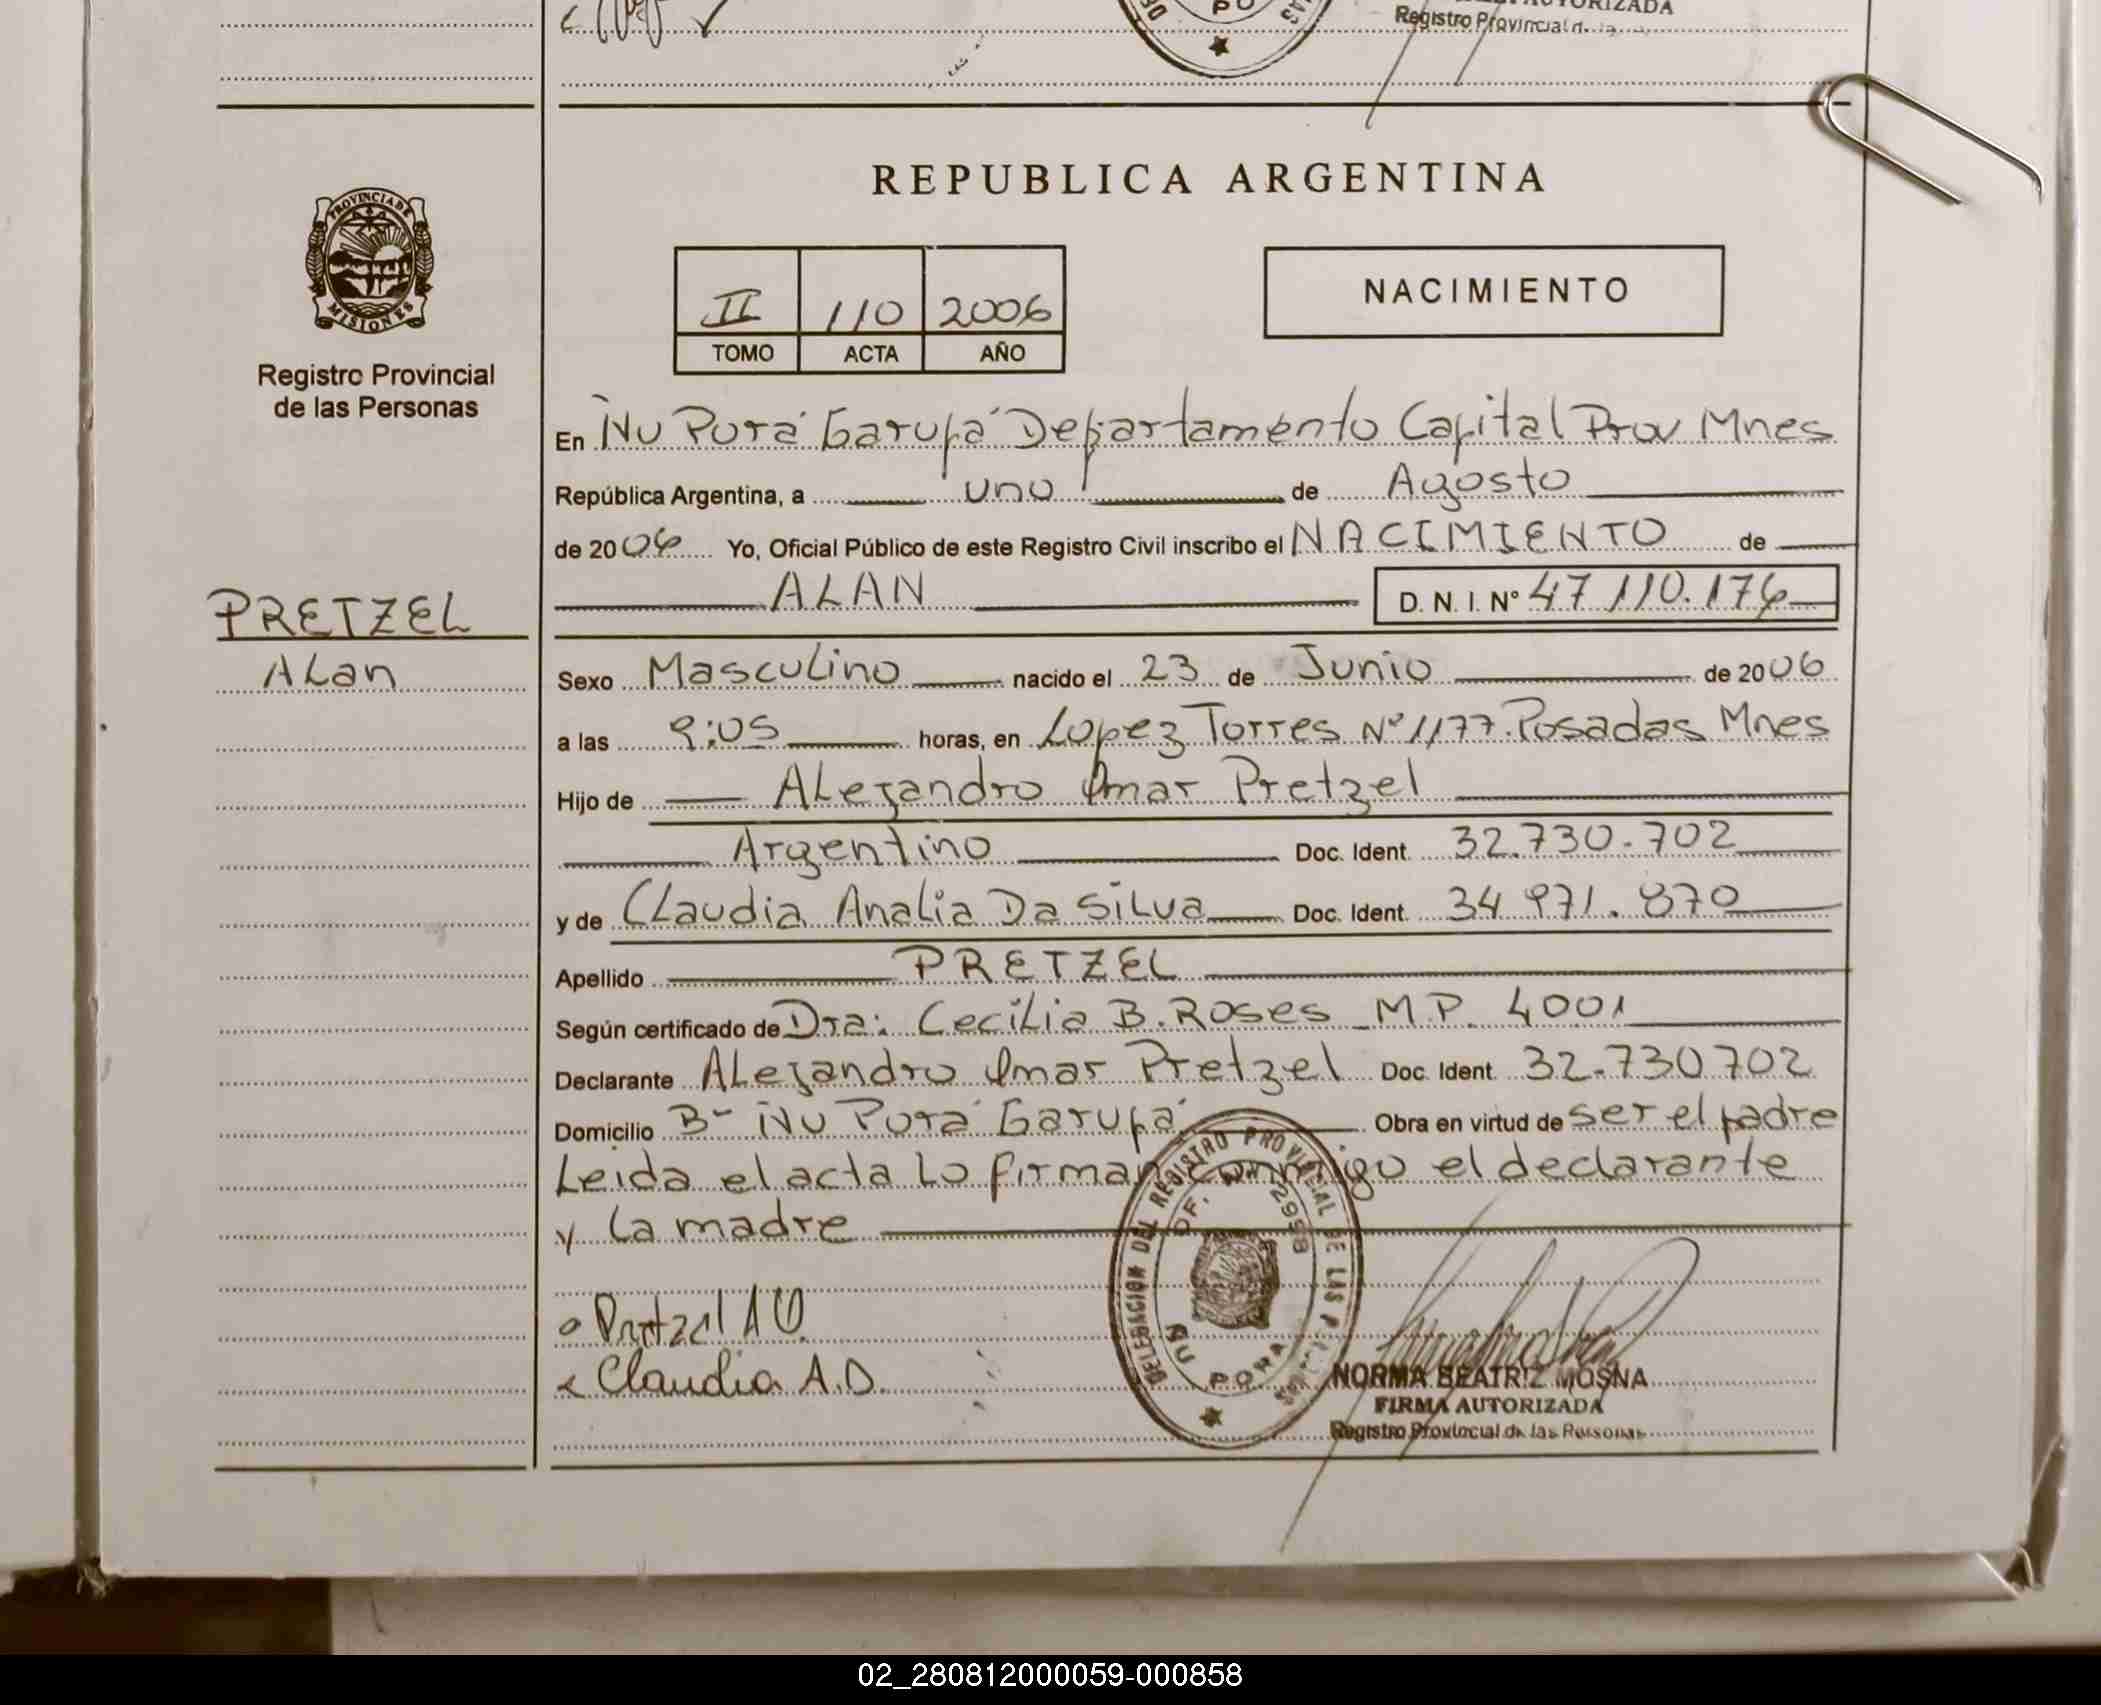 Registro Provincial de la
REPUBLICA ARGENTINA
PROVINCIA DE
MISIONES
Registro Provincial
de las Personas
II 110 2006
TOMO ACTA AÑO
NACIMIENTO
En Ñu Porá Garupá Departamento Capital Prov Mnes
República Argentina, a uno de Agosto
de 2006 Yo, Oficial Público de este Registro Civil inscribo el NACIMIENTO de
ALAN D. N. I. Nº 47 110.176
PRETZEL
ALan
Sexo Masculino nacido el 23 de Junio de 2006
a las 9:05 horas, en Lopez Torres Nº 1177. Posadas Mnes
Hijo de ALejandro Omar Pretzel
Argentino Doc. Ident. 32.730.702
y de CLaudia Analia Da SiLva Doc. Ident. 34 971.870
Apellido PRETZEL
Según certificado de Dra: CeciLia B. Roses M.P. 4001
Declarante ALejandro Omar Pretzel Doc. Ident. 32.730702
Domicilio Bº Ñu Porá Garupá Obra en virtud de ser el padre
Leida el acta Lo firman conmigo el declarante
y La madre
DELEGACION DEL REGISTRO PROVINCIAL DE LAS
OF. 2998
ÑU PORA
Pretzel A O.
Claudia A.D.
NORMA BEATRIZ MOSNA
FIRMA AUTORIZADA
Registro Provincial de las Personas
02_280812000059-000858